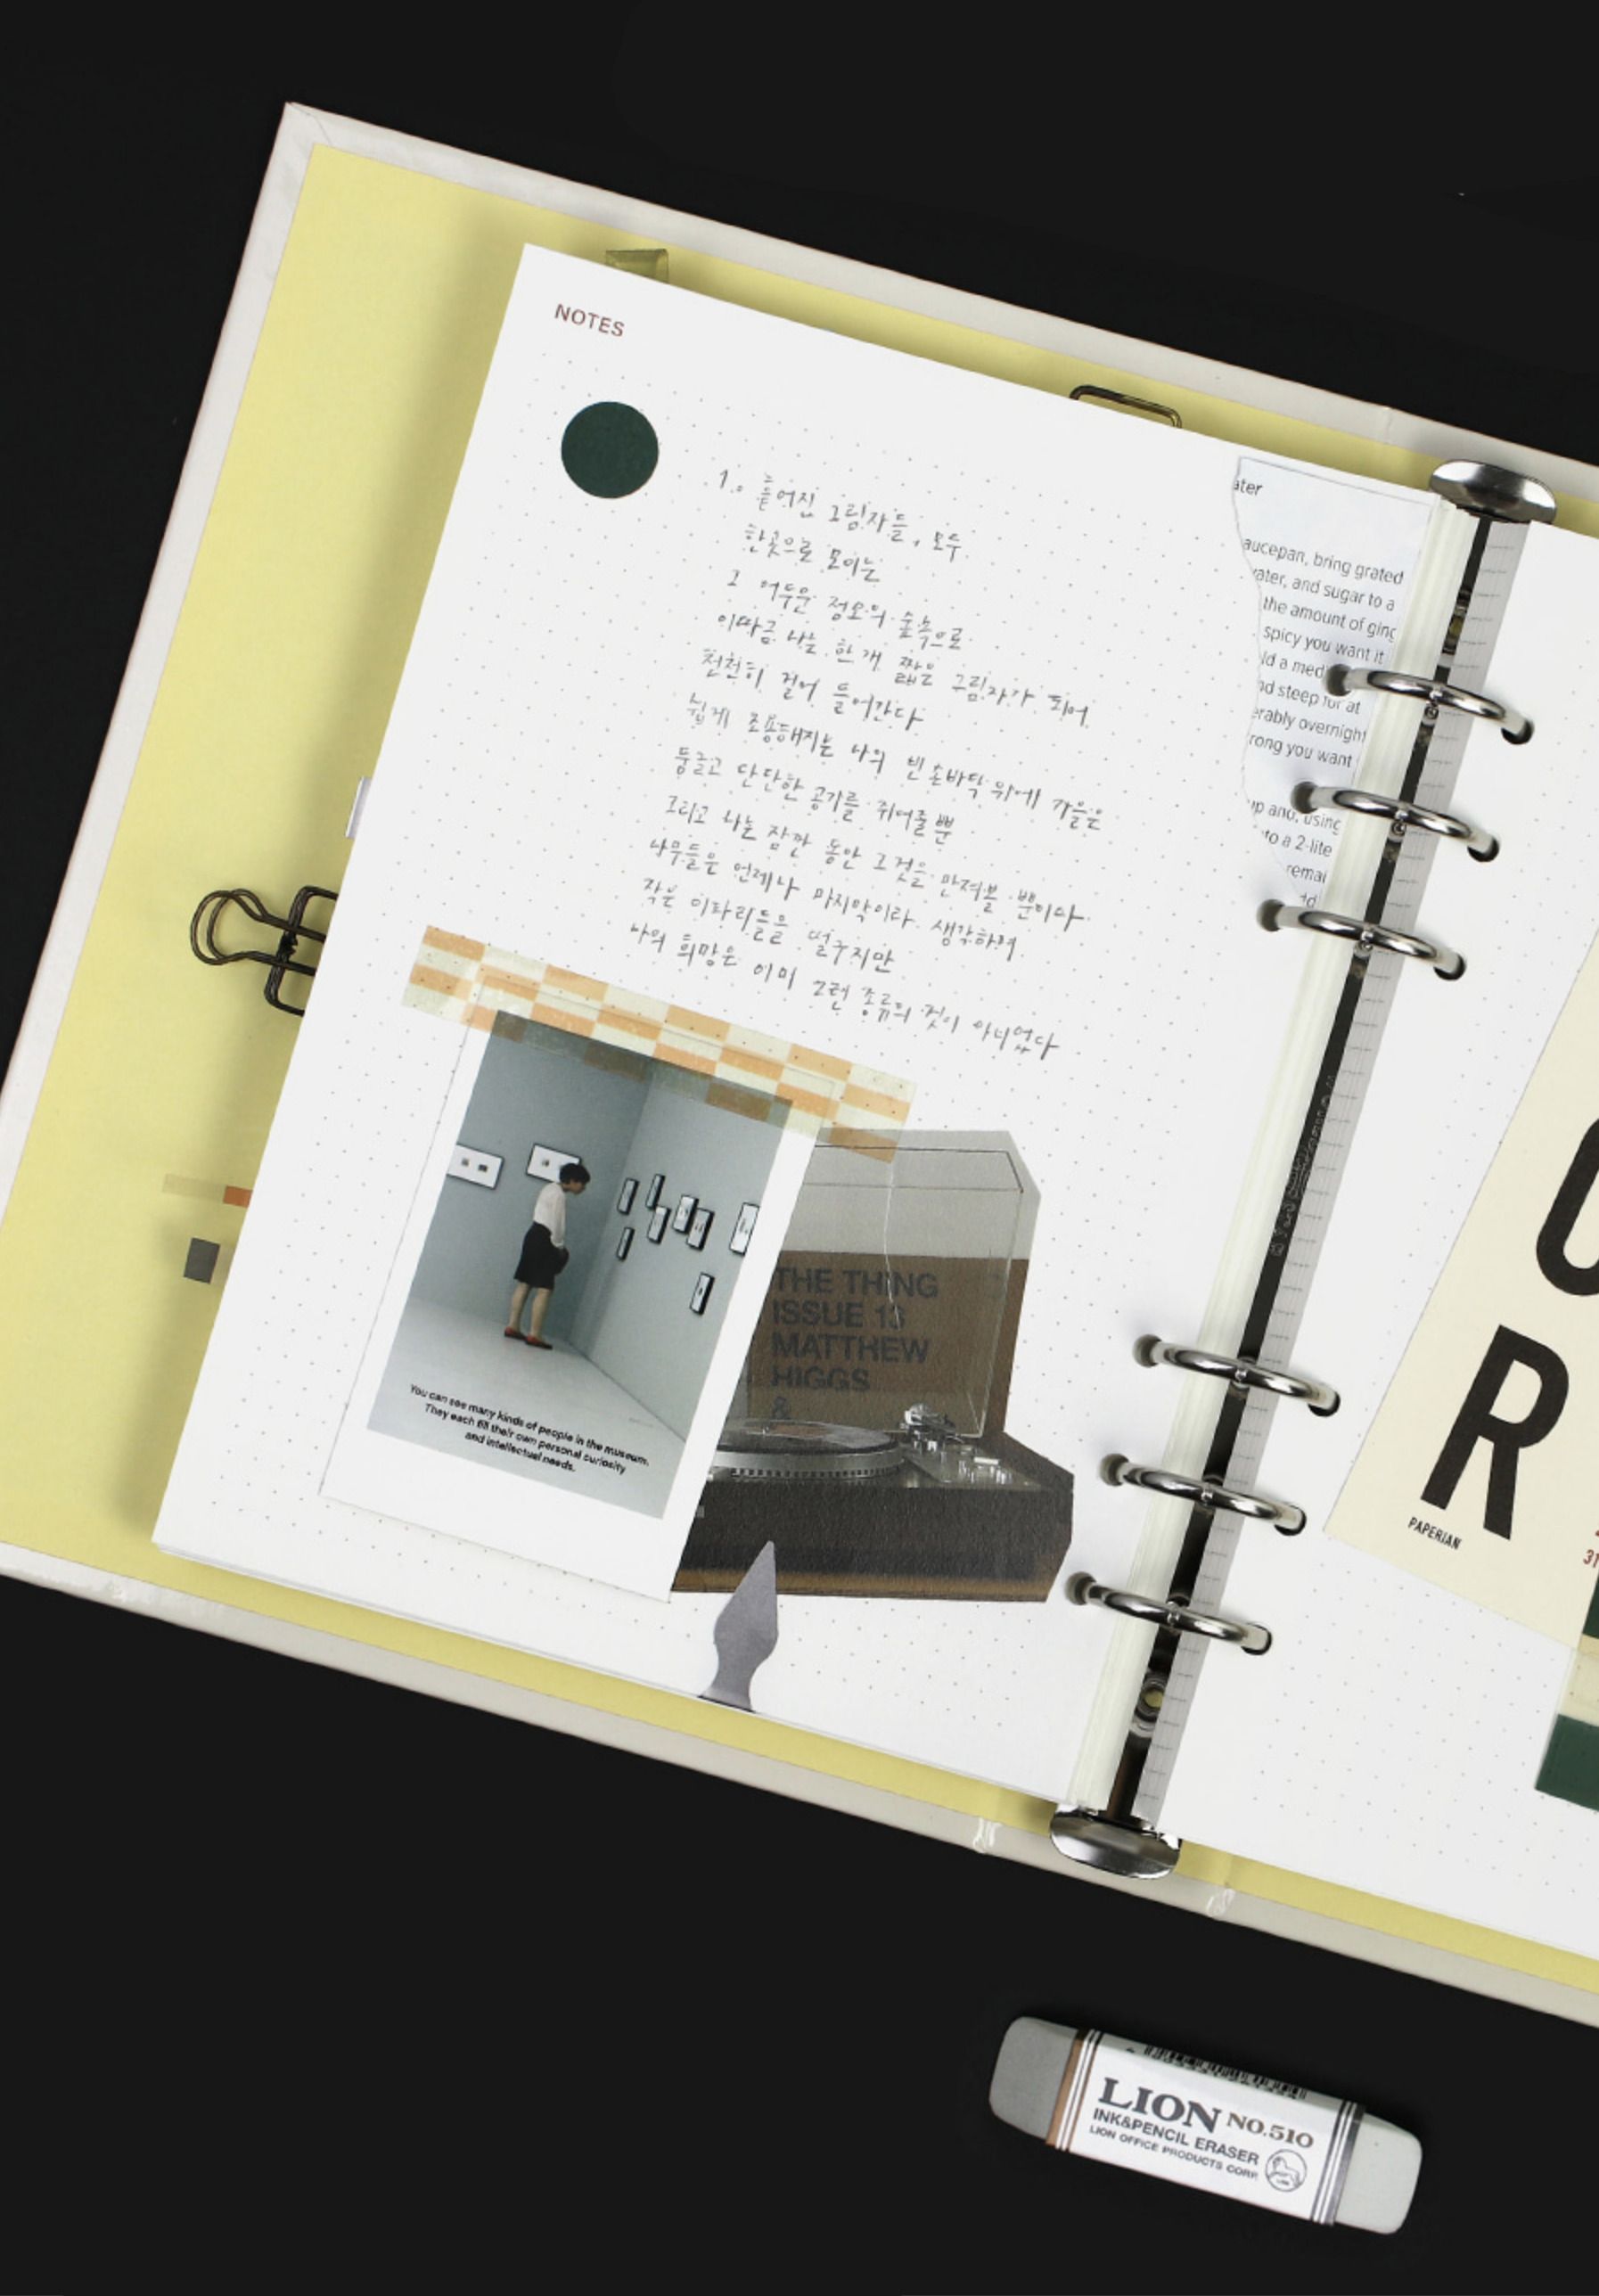 NOTES
1. 흩어진 그림자들, 모두
한곳으로 모이는
그 어두운 정오의 숲속으로
이따금 나는 한 개 짧은 그림자가 되어
천천히 걸어 들어간다
쉽게 조용해지는 나의 빈 손바닥 위에 가을은
둥글고 단단한 공기를 쥐어줄 뿐
그리고 나는 잠깐 동안 그것을 만져볼 뿐이다
나무들은 언제나 마지막이라 생각하며
작은 이파리들을 떨구지만
나의 희망은 이미 그런 종류의 것이 아니었다
ater
aucepan, bring grated
ater, and sugar to a
the amount of ging
spicy you want it
ld a med
nd steep for at
erably overnight
rong you want
up and, using
to a 2-lite
remai
You can see many kinds of people in the museum.
They each fill their own personal curiosity
and intellectual needs.
THE THING
ISSUE 13
MATTHEW
HIGGS
&
O
R
PAPERIAN
31
LION NO.510
INK&PENCIL ERASER
LION OFFICE PRODUCTS CORP.